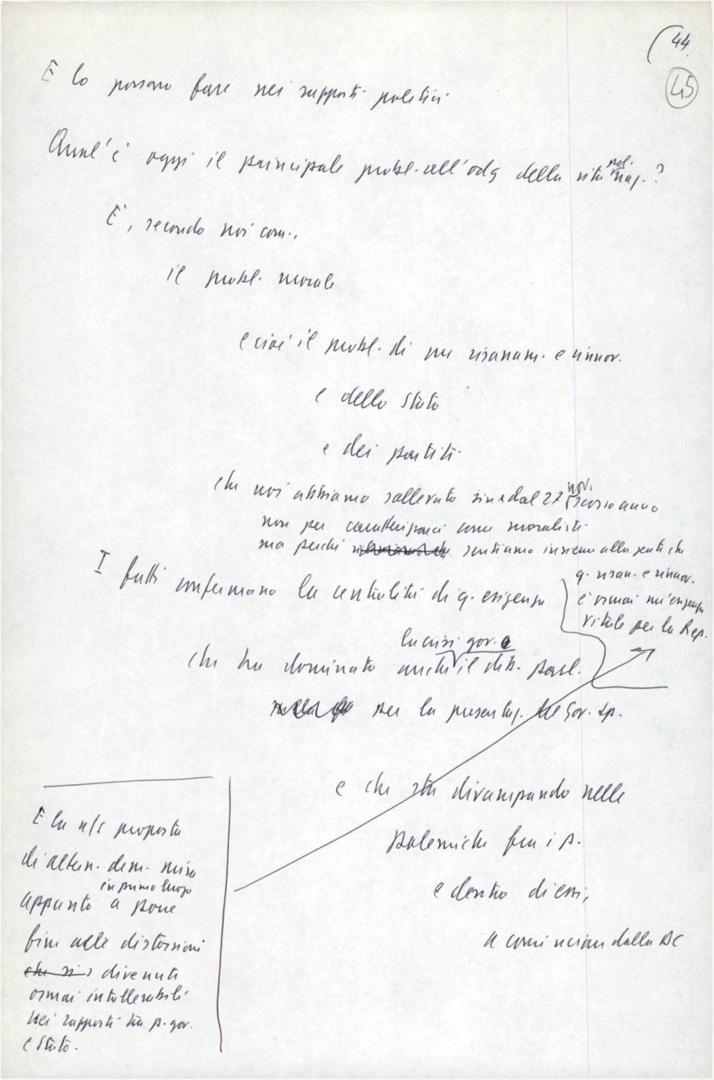 44
45
E lo possono fare nei rapporti politici
Qual'è oggi il principale probl. all'odg della vita pol. naz.?
È, secondo noi com.,
il probl. morale
e cioè il probl. di un risanam. e rinnov.
e dello Stato
e dei partiti
che noi abbiamo sollevato sin dal 27 nov. scorso anno
non per caratterizzarci come moralisti
ma perché sentiamo insieme alla gente che
q. risan. e rinnov.
è ormai un'esigenza
vitale per la Rep.
I fatti confermano la centralità di q. esigenza
che ha dominato anche la crisi gov. e il dib. parl.
per la presentaz. del gov. Sp.
e che sta divampando nelle
polemiche fra i p.
e dentro di essi,
a cominciare dalla DC
E la n/s proposta
di altern. dem. mira
in primo luogo
appunto a porre
fine alle distorsioni
che si divenute
ormai intollerabili
nei rapporti tra p. gov.
e Stato.